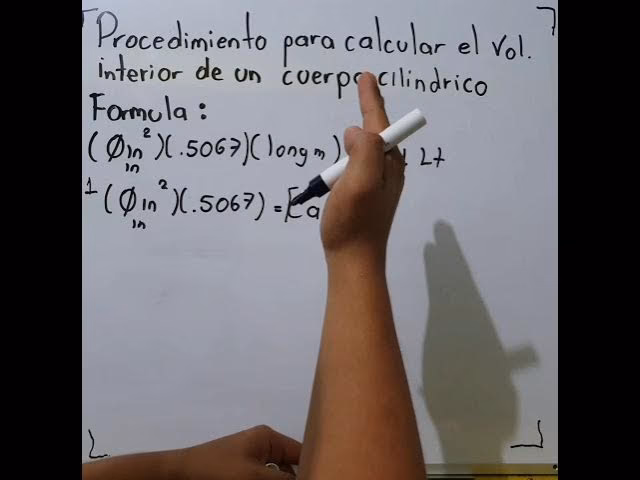 Procedimiento para calcular el Vol.
interior de un cuerpo cilindrico
Formula:
(Øin²)(.5067)(long m) Lt
in
1 (Øin²)(.5067) = [Ca
in